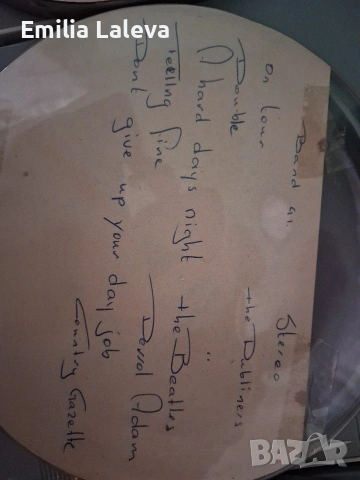 Emilia Laleva
Band 41 Stereo
on tour the Dubliners
Double
A hard days night the Beatles
Feeling fine "
Dont give up your day job Derrol Adam
Country Gazette
BAZAR